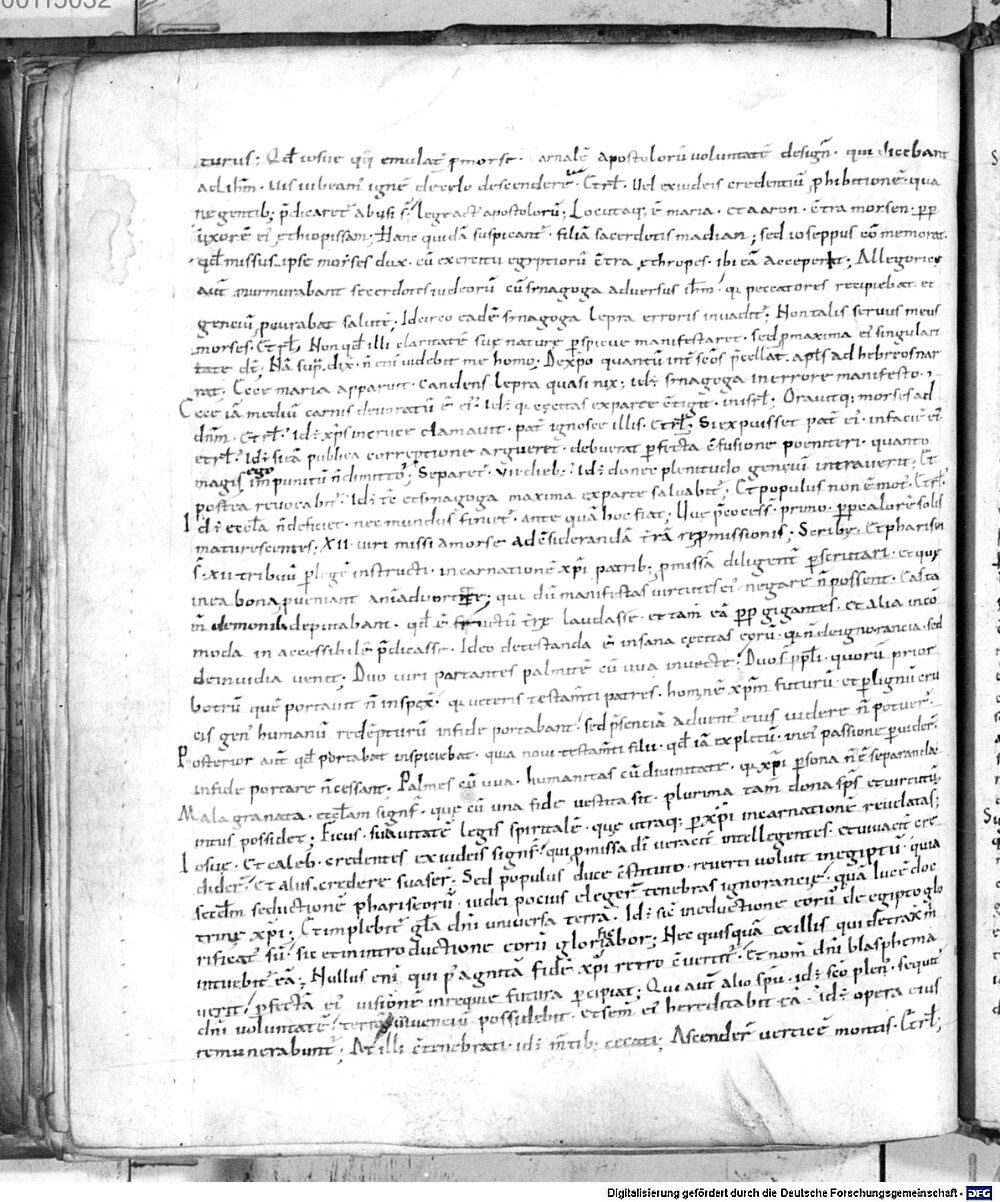 turus; Qđ iosue qͥ emulat͛ p̱ morse · carnalē apostolorū voluntatē design̄ · qui dicebant
ad ihm̄ · Uis iubeam͛ ignē de celo descendere; &c̄ · Vel ex iudeis credentiū p̱hibitionē · qua
ne gentib; p̄dicaret͛ abusi s̄; lege act͛ apostolorū; Locutaq; ē maria · et aaron · c̄tra morsen · pp̱
uxorē ei͛ ęthiopissam; Hanc quidā suspicant͛ · filiā sacerdotis madian; sed ioseppus eō memorat ·
qđ missus ipse morses dux · cū exercitu egyptiorū c̄tra ęthiopes · ibi eā acceperit; Allegorice
aut̄ murmurabant sacerdotes iudeorū cū synagoga adversus ihm̄ · q͛ peccatores recipiebat · et
gentiū p̱curabat salutē; Idcirco eadē synagoga lepra erroris invadit͛; Non talis servus meus
morses · &c̄; Non qđ illi claritatē suę nature p̱spicue manifestaret · sed p̱ maxima ei͛ singulari
tate dc̄; Nā sup̄ dix̄ · n̄ eni͛ videbit me homo; De xp̄o quantū int͛ sc̄os p̄cellat · apl̄s ad hebreos nar
rat · Ecce maria apparuit · candens lepra quasi nix; id; synagoga in errore manifesto ·
Ecce iā mediū carnis devoratū ē ei͛; Id; q͛ cęcitas ex parte c̄tigit · in isrl̄; Oravitq; morses ad
dnm̄ · &c̄; id; xp̄s in cruce clamavit · pat͛ ignosce illis · &c̄; Si expuisset pat͛ ei͛ · in facie ei͛
&c̄; Id; si eā publica correptione argueret · debuerat p̱fecta c̄fusione poeniteri · quanto
magis ego impunitū n̄ dimitto; Separet͛ · VII dieb; Id; donec plenitudo gentiū intraverit; Et
postea revocabit͛; Id; tc̄ et synagoga maxima ex parte salvabit͛; Et populus non ē mot͛ · &c̄;
Id; eccl̄a n̄ deficiet · nec mundus finiet͛ · ante quā hoc fiat; Uve p̄coces s̄ · primo · pp̱ calorē solis
maturescentes; XII · viri missi a morse ad c̄siderandā t͛rā rep̱missionis; Scribe · et pharisei
s̄ · XII tribuū p̱ legē instructi · incarnationē xp̄i patrib; p̱missā diligent͛ p̱scrutari · et que
in ea bona p̱veniant animadvertere; qui dū manifestas virtutes ei͛ · negare n̄ possent · casta
m̄ demonib; deputabant · qđ ē fructū t͛re laudasse · et tam̄ eā pp̱ gigantes · et alia incō
moda inaccessibilē p̄dicasse · Ideo detestanda ē insana cęcitas eorū · q͛ n̄ de ignorancia · sed
de invidia venit; Duo viri portantes palmitē cū uva in vecte; Duo s̄ pp̱li · quorū prior
botrū quē portavit n̄ inspex̄; q͛ veteris testam̄ti patres · hominē xp̄m futurū · et p̱ lignū cru
cis gen͛ humanū redēpturū in fide portabant; sed p̄sentiā advent͛ eius videre n̄ potuer̄ ·
Posterior aut̄ qđ portabat inspiciebat · quia novi testam̄ti filii · qđ iā expletū · in ei͛ passione p̱vider̄ ·
in fide portare n̄ cessant · Palmes cū uva · humanitas cū divinitate · q͛ xp̄i p̱sona n̄ ē separanda
Mala granata · eccl̄am signf̄ · que cū una fide vestita sit · plurima tam̄ dona sps̄ et virtutū
intus possidet; Ficus · suavitatē legis spiritalē · que utraq; p̱ xp̄i incarnationē revelatas;
Iosue · Et caleb · credentes ex iudeis signf̄; qui p̱missa dī veracit͛ intellegentes · et vivacit͛ cre
dider̄; Et alios credere suaser̄; Sed populus duce c̄stituto · reverti voluit in egiptū · quia
sectam seductionē phariseorū · iudei pocius eleger̄ tenebras ignorancie; quā lucē doc
trine xp̄i; Et implebit͛ gl̄a dn̄i universa terra · Id; sic in eductione eorū de egipto glo
rificat͛ sū · sic et in introductione eorū glorificabor; Nec quisquā ex illis qui detraxit m̄
intuebit͛ eā; Nullus eni͛ qui p͛ agnitā fidē xp̄i retro c̄vertit͛; Et nom̄ dn̄i blasphema
verit; p̱fectā ei͛ visionē in requie futura p̱cipiat; Qui aut̄ alio spū · id; sc̄o plen͛ · sequit͛
dn̄i voluntatē; terrā viventiū possidebit · et sem̄ ei͛ hereditabit eā · id; opera eius
remunerabunt͛; At illi c̄tenebrati · id; m̄tib; cecati; Ascender̄ verticē montis · &c̄;
Digitalisierung gefördert durch die Deutsche Forschungsgemeinschaft · DFG